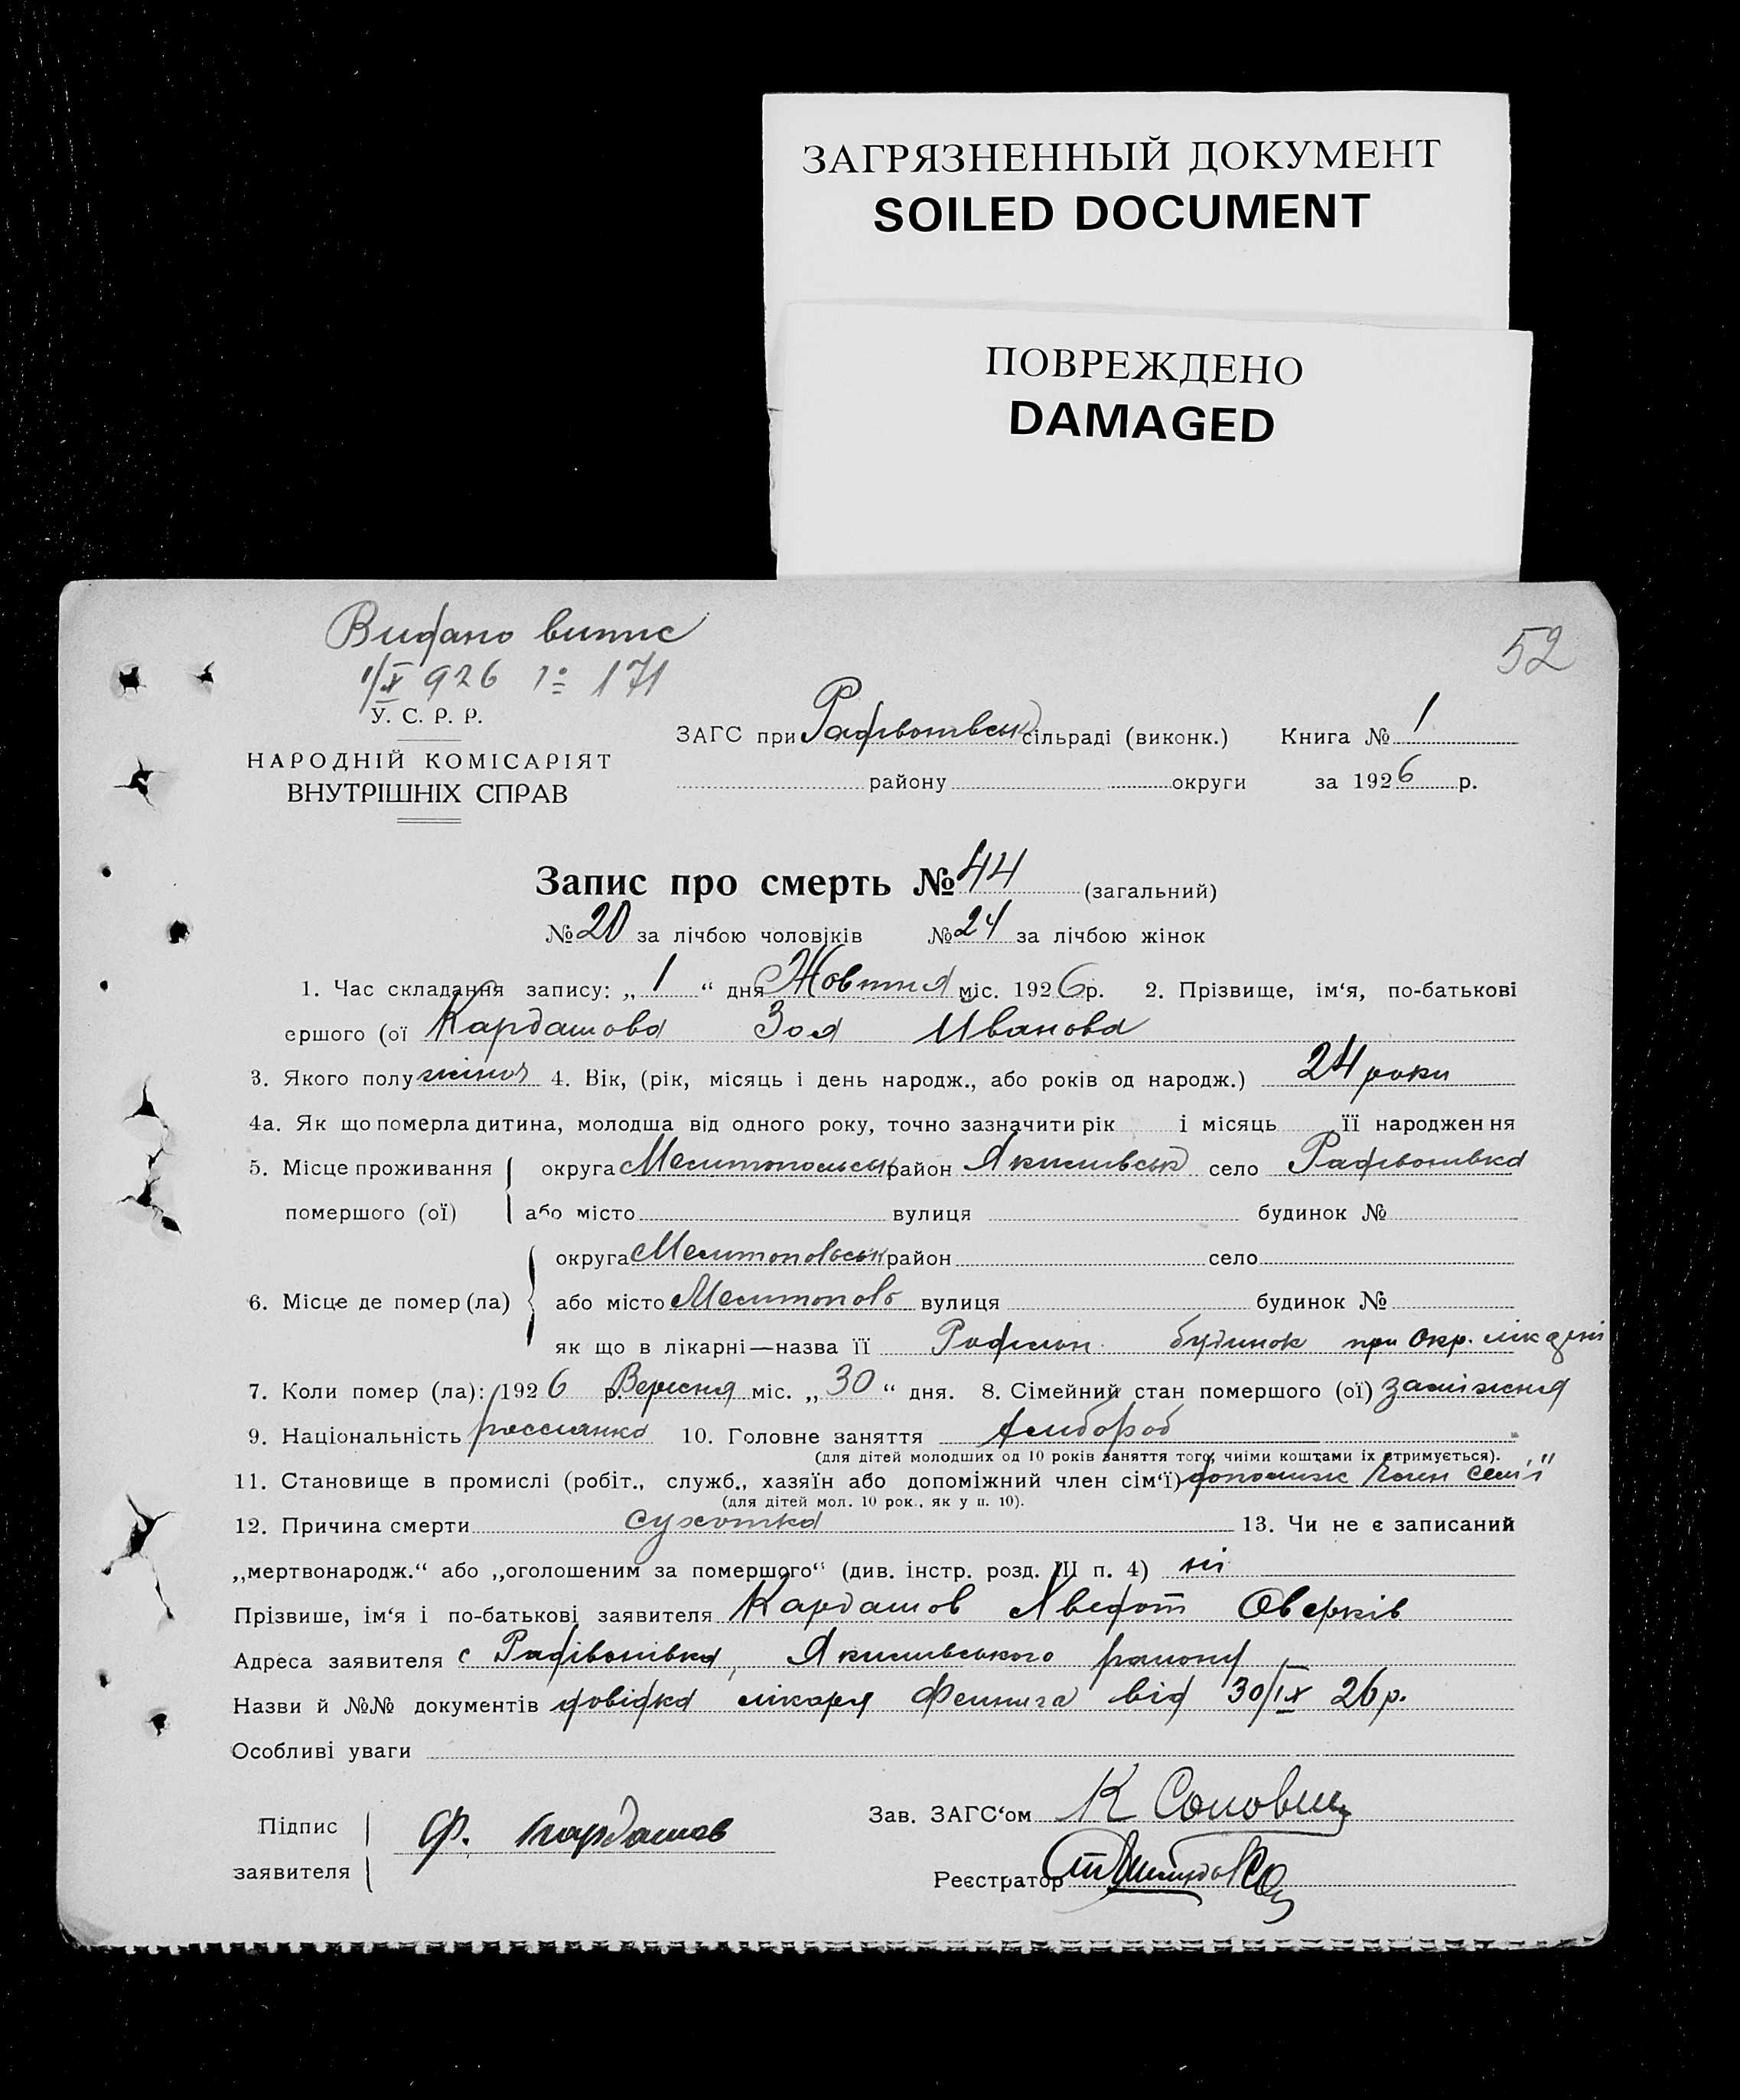 ЗАГРЯЗНЕННЫЙ ДОКУМЕНТ
SOILED DOCUMENT
ПОВРЕЖДЕНО
DAMAGED
Видано випис
1/X 926 № 171
52
У. С. Р. Р.
НАРОДНІЙ КОМІСАРІЯТ
ВНУТРІШНІХ СПРАВ
ЗАГС при Радівонівськ сільраді (виконк.) Книга № 1
району округи за 1926 р.
Запис про смерть № 44 (загальний)
№ 20 за лічбою чоловіків № 24 за лічбою жінок
1. Час складання запису: „ 1 “ дня Жовтня міс. 1926 р. 2. Прізвище, ім‘я, по-батькові
ершого (ої Кардашова Зоя Иванова
3. Якого полу жіноч 4. Вік, (рік, місяць і день народж., або років од народж.) 24 роки
4а. Як що померла дитина, молодша від одного року, точно зазначити рік і місяць її народження
5. Місце проживання округа Мелитопольськ район Якимівськ село Радівонівка
помершого (ої) або місто вулиця будинок №
округа Мелитопольськ район село
6. Місце де помер (ла) або місто Мелитополь вулиця будинок №
як що в лікарні—назва її будинок при Окр.
7. Коли помер (ла): 1926 р. Вересня міс. „ 30 “ дня. 8. Сімейний стан помершого (ої) заміжня
9. Національність россиянка 10. Головне заняття хлибороб
(для дітей молодших од 10 років заняття того, чиїми коштами їх отримується).
11. Становище в промислі (робіт., служб., хазяїн або допоміжний член сім‘ї) допоміжн член семʼї
(для дітей мол. 10 рок., як у п. 10).
12. Причина смерти сухотка 13. Чи не є записаний
„мертвонародж.“ або „оголошеним за помершого“ (див. інстр. розд. III п. 4) ні
Прізвише, ім‘я і по-батькові заявителя Кардашов Хведот Оверків
Адреса заявителя с Радівонівка, Якимівського району
Назви й №№ документів довідка лікаря від 30/IX 26 р.
Особливі уваги
Підпис
заявителя
Ф. Кардашов
Зав. ЗАГС‘ом К
Реєстратор